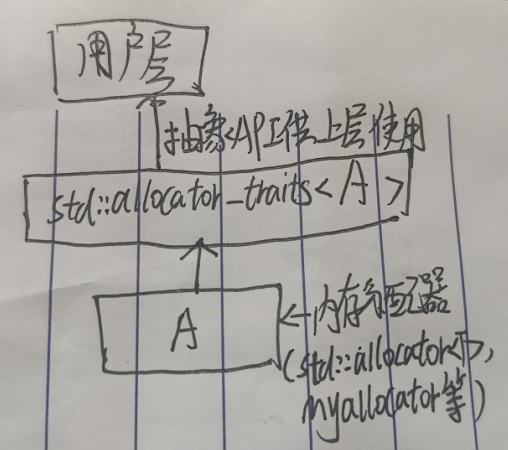 用户层
抽象API供上层使用
std::allocator_traits<A>
A
←内存分配器
(std::allocator<T>,
myallocator等)